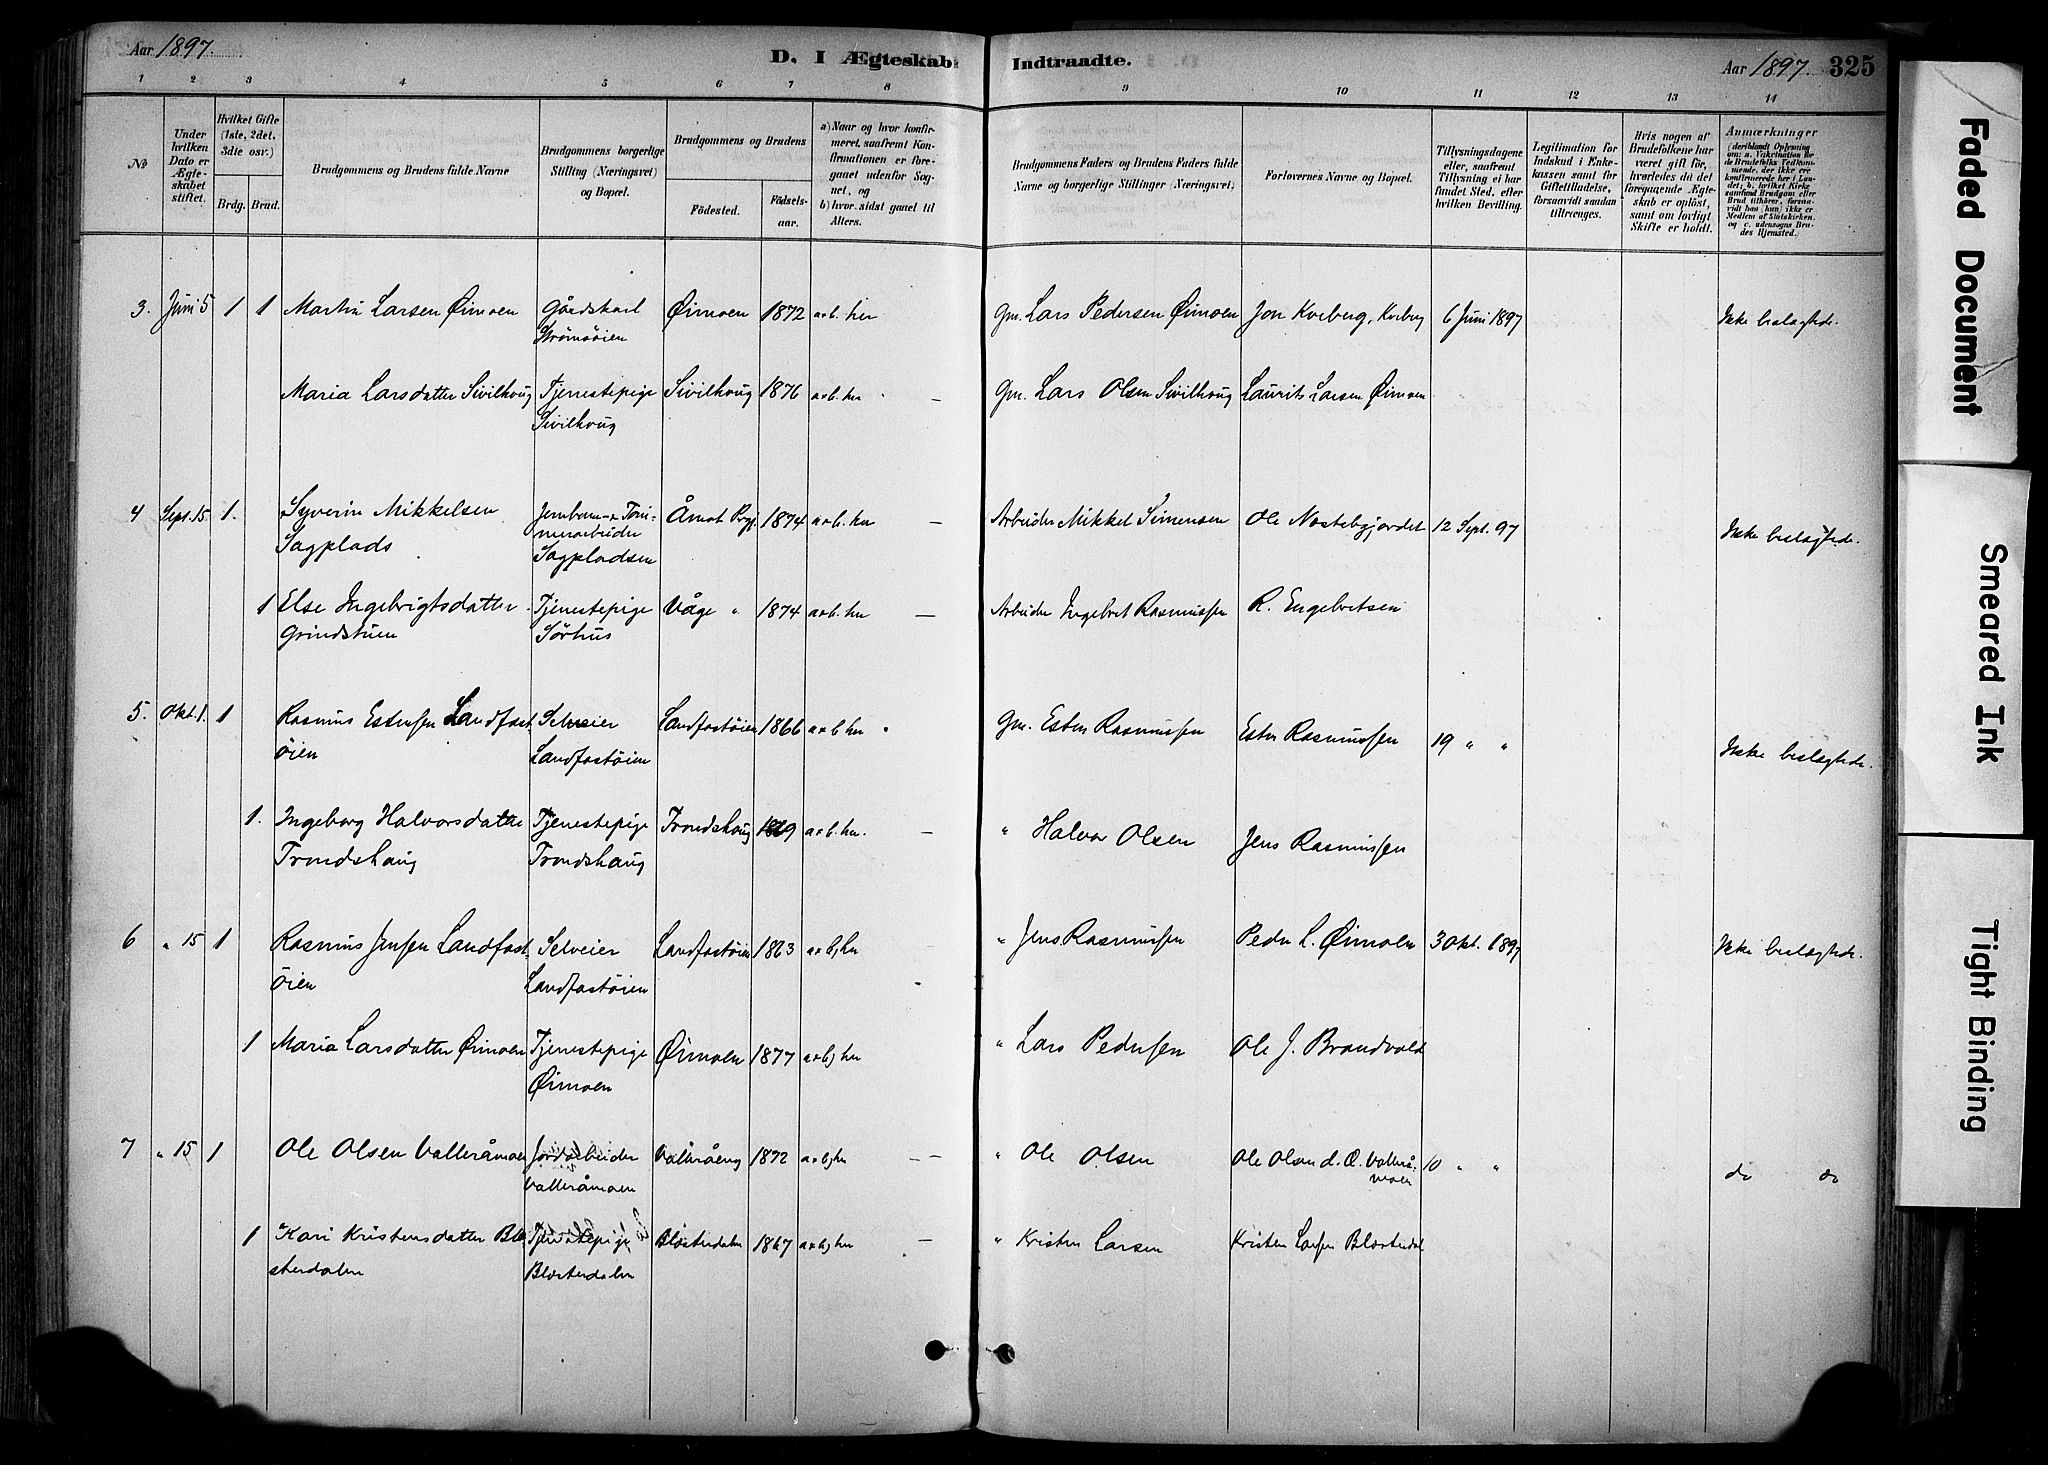 Aar 1897.
D. I Ægteskab
Indtraadte.
Aar 1897. 325
1 2 3 4 5 6 7 8 9 10 11 12 13 14
No
Under hvilken Dato er Ægteskabet stiftet.
Hvilket Gifte (1ste, 2det, 3die osv.)
Brdg. Brud.
Brudgommens og Brudens fulde Navne
Brudgommens borgerlige Stilling (Næringsvei) og Bopæl.
Brudgommens og Brudens
Födested.
Födselsaar.
a) Naar og hvor konfirmeret, saafremt Konfirmationen er foregaaet udenfor Sognet, og
b) hvor sidst gaaet til Alters.
Brudgommens Faders og Brudens Faders fulde Navne og borgerlige Stillinger (Næringsvei)
Forlovernes Navne og Bopæl.
Tillysningsdagene eller, saafremt Tillysning ei har fundet Sted, efter hvilken Bevilling.
Legitimation for Indskud i Enkekassen samt for Giftetilladelse, forsaavidt saadan tiltrænges.
Hvis nogen af Brudefolkene har været gift för, hvorledes da det foregaaende Ægteskab er oplöst, samt om lovligt Skifte er holdt.
Anmærkninger (deriblandt Oplysning om: a. Vakcination for de Brudefolks Vedkommende, der ikke ere konfirmerede her i Landet; b. hvilket Kirkesamfund Brudgom eller Brud tilhörer, forsaavidt han (hun) ikke er Medlem af Statskirken, og c. udensogns Brudes Hjemsted.)
3. Juni 5 1 1 Martin Larsen Øimoen Gårdskarl Øimoen 1872 a+b. her Gm. Lars Pedersen Øimoen Jon Kveberg, Kveberg 6 Juni 1897 Ikke beslægtede.
Strømsøien
Maria Larsdatter Sivilhaug Tjenestepige Sivilhaug 1876 a+b. her — Gm. Lars Olsen Sivilhaug Laurits Larsen Øimoen
Sivilhaug
4 Sept. 15 1. Syverin Mikkelsen Jernbane- & Tøm- Åmot 1874 a+b. her — Arbeider Mikkel Simensen Ole Nostebgjordet 12 Sept. 97 Ikke beslægtede.
Sagplads merarbeider
Sagpladsen
1 Else Ingebrigtsdatter Tjenestepige Våge " 1874 a+b. her — Arbeider Ingebret Rasmussen R. Engebretsen
Grindstuen Sørhus
5. Okt. 1. 1 Rasmus Estensen Landfast Selveier Landfastøien 1866 a+b her " Gm. Esten Rasmussen Esten Rasmussen 19 " " Ikke beslægtede.
øien Landfastøien
1. Ingeborg Halvorsdatter Tjenestepige Trondshaug a+b. her. — " Halvor Olsen Jens Rasmussen
Trondshaug Trondshaug
6 " 15 1 Rasmus Jensen Landfast Selveier Landfastøien 1863 a+b, her " Jens Rasmussen Peder L. Øimoen 3 Okt. 1897 Ikke beslægtede.
øien Landfastøien
1 Maria Larsdatter Øimoen Tjenestepige Øimoen 1877 a+b, her " Lars Pedersen Ole J. Brandvold
Øimoen
7 " 15 1 Ole Olsen Valleråmoen Jordarbeider Vålleråeng 1872 a+b, her — — " Ole Olsen Ole Olsen d. Æ. Vallerå- 10 " " do do
Valleråmoen moen
1 Kari Kristensdatter Blæ Tjenestepige Blæsterdalen 1867 a+b, her — " Kristen Larsen Kristen Larsen Blæsterdal
sterdalen Blæsterdalen
Faded Document
Smeared Ink
Tight Binding